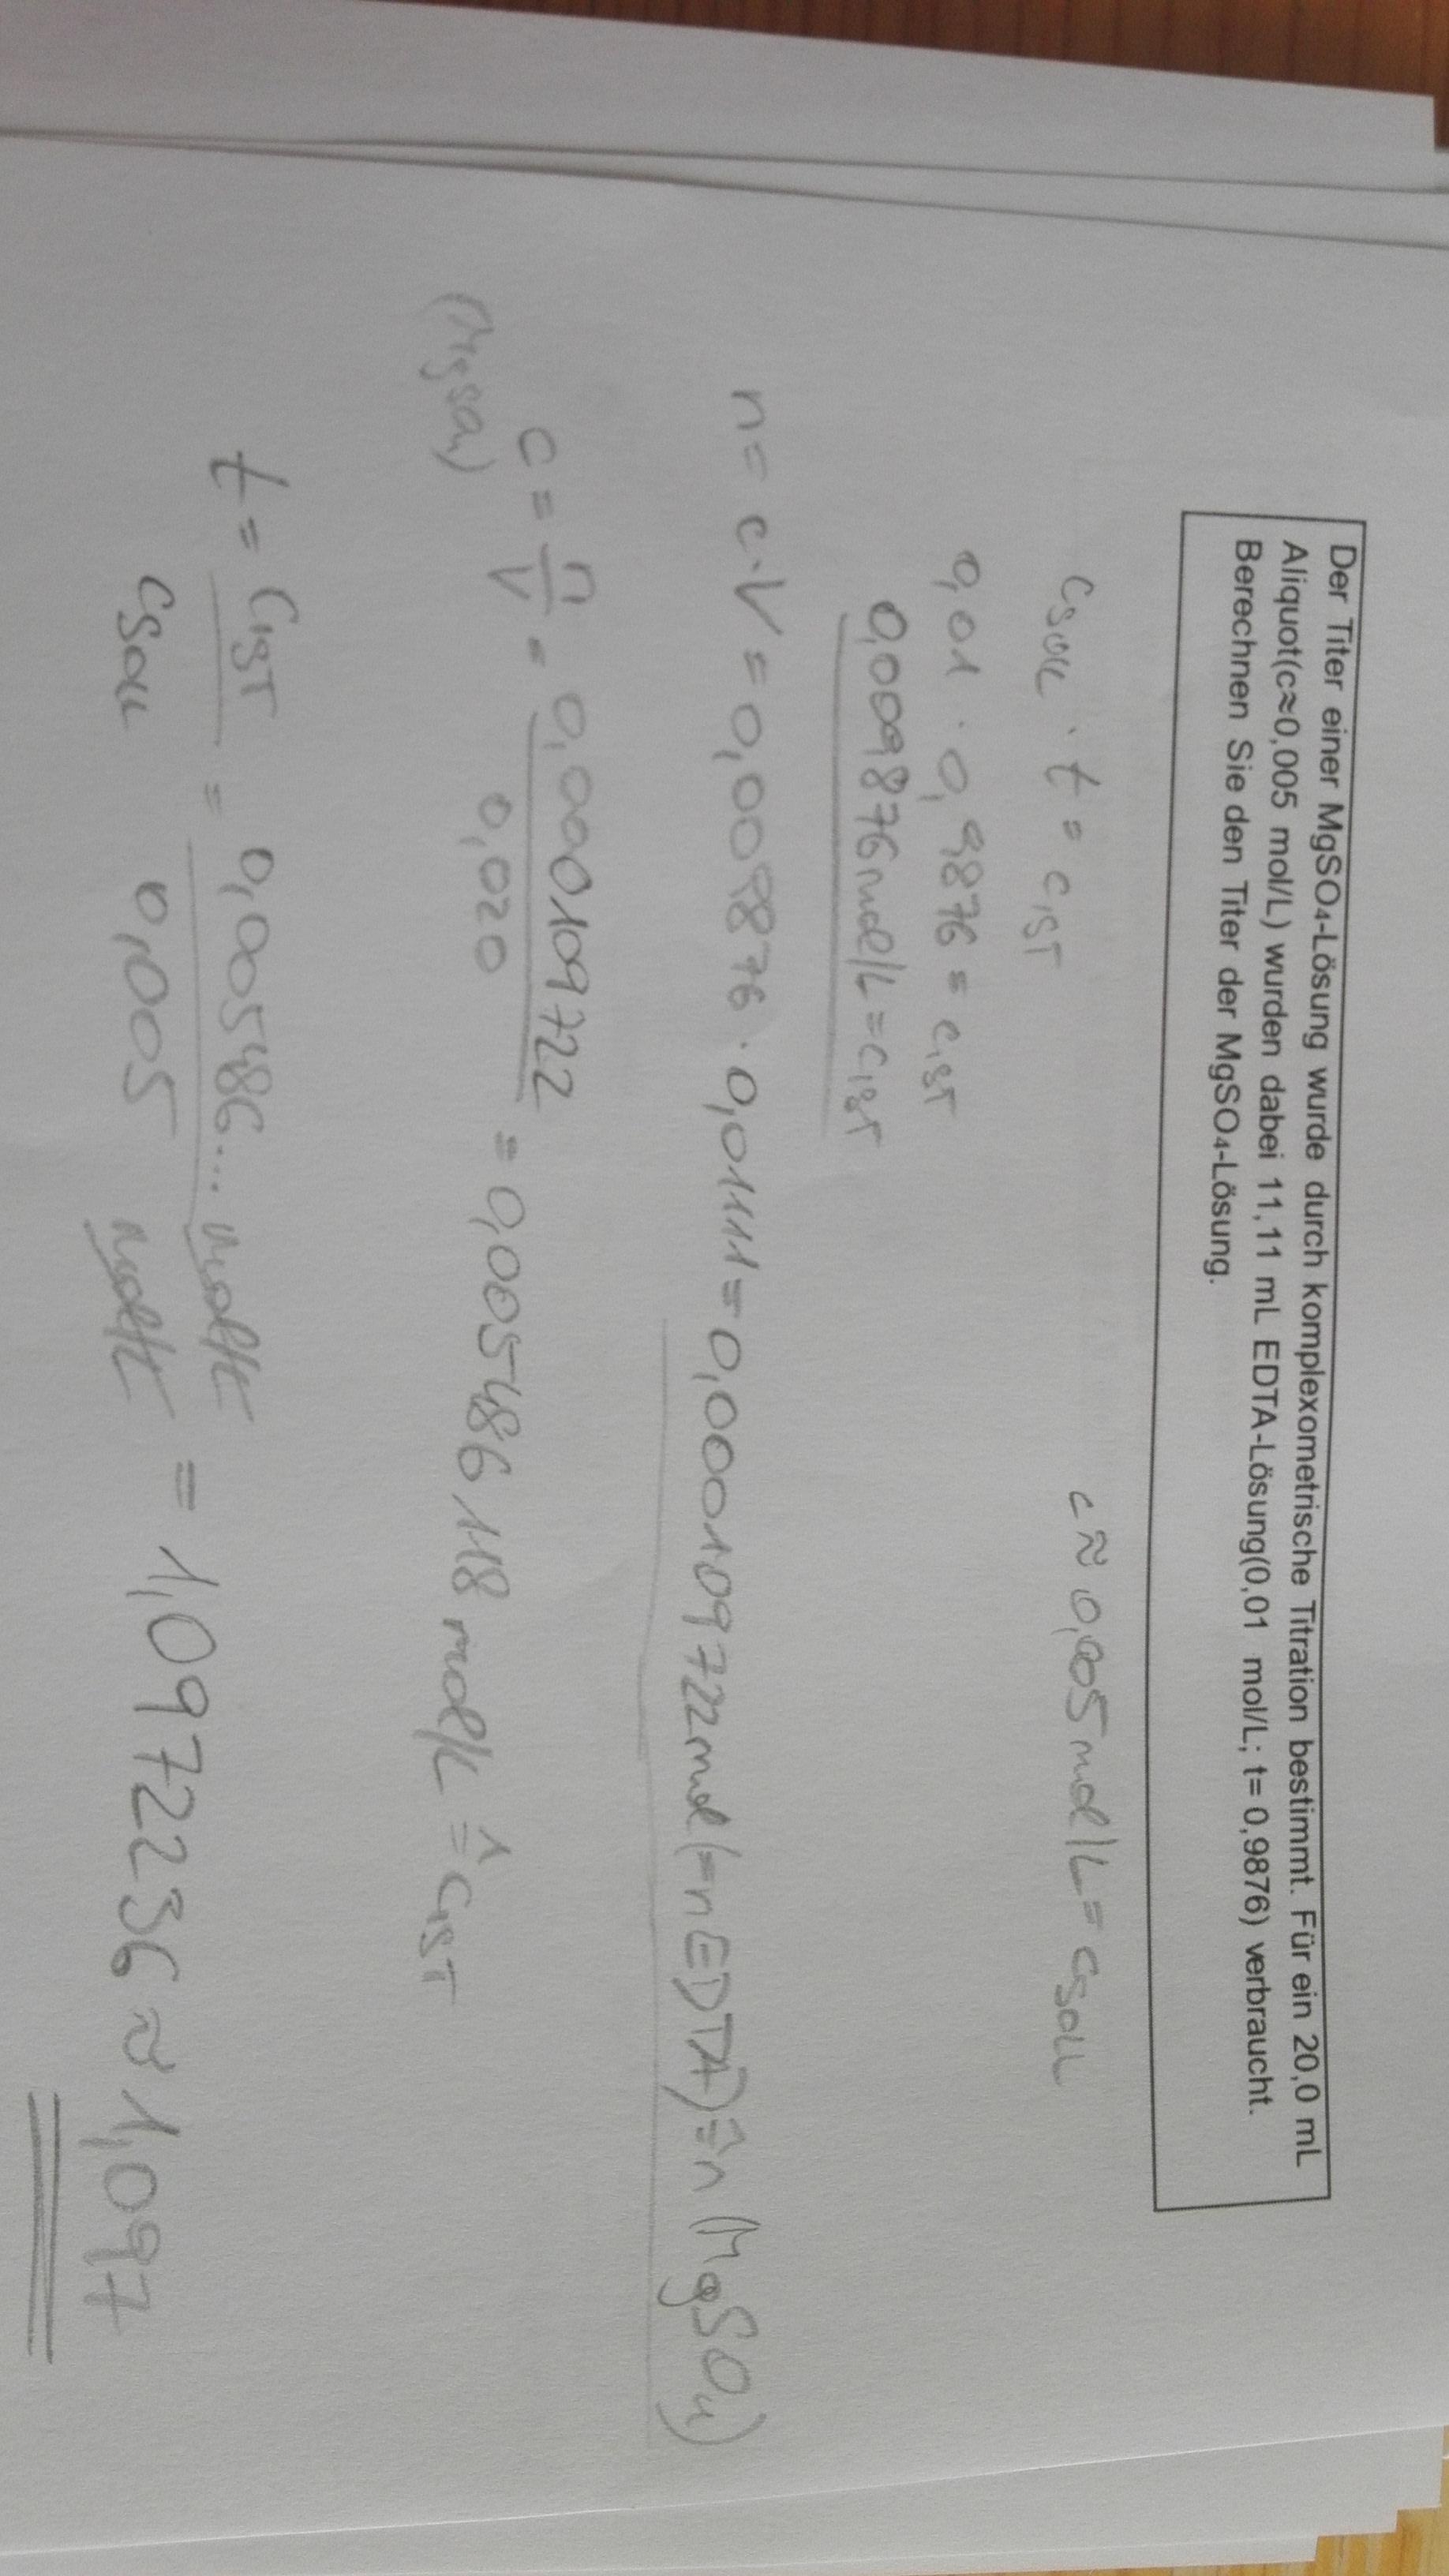 Der Titer einer MgSO₄-Lösung wurde durch komplexometrische Titration bestimmt. Für ein 20,0 mL
Aliquot(c≈0,005 mol/L) wurden dabei 11,11 mL EDTA-Lösung(0,01 mol/L; t= 0,9876) verbraucht.
Berechnen Sie den Titer der MgSO₄-Lösung.
cSOLL · t = cIST c ≈ 0,005 mol/L = cSOLL
0,01 · 0,9876 = cIST
0,009876 mol/L = cIST
n = c·V = 0,009876 · 0,01111 = 0,000109722 mol (=n EDTA) ≙ n (MgSO4)
c = n/V = 0,000109722/0,020 = 0,005486118 mol/L ≙ cIST
(MgSO4)
t = cIST/cSOLL = 0,005486... mol/L / 0,005 mol/L = 1,0972236 ≈ 1,097